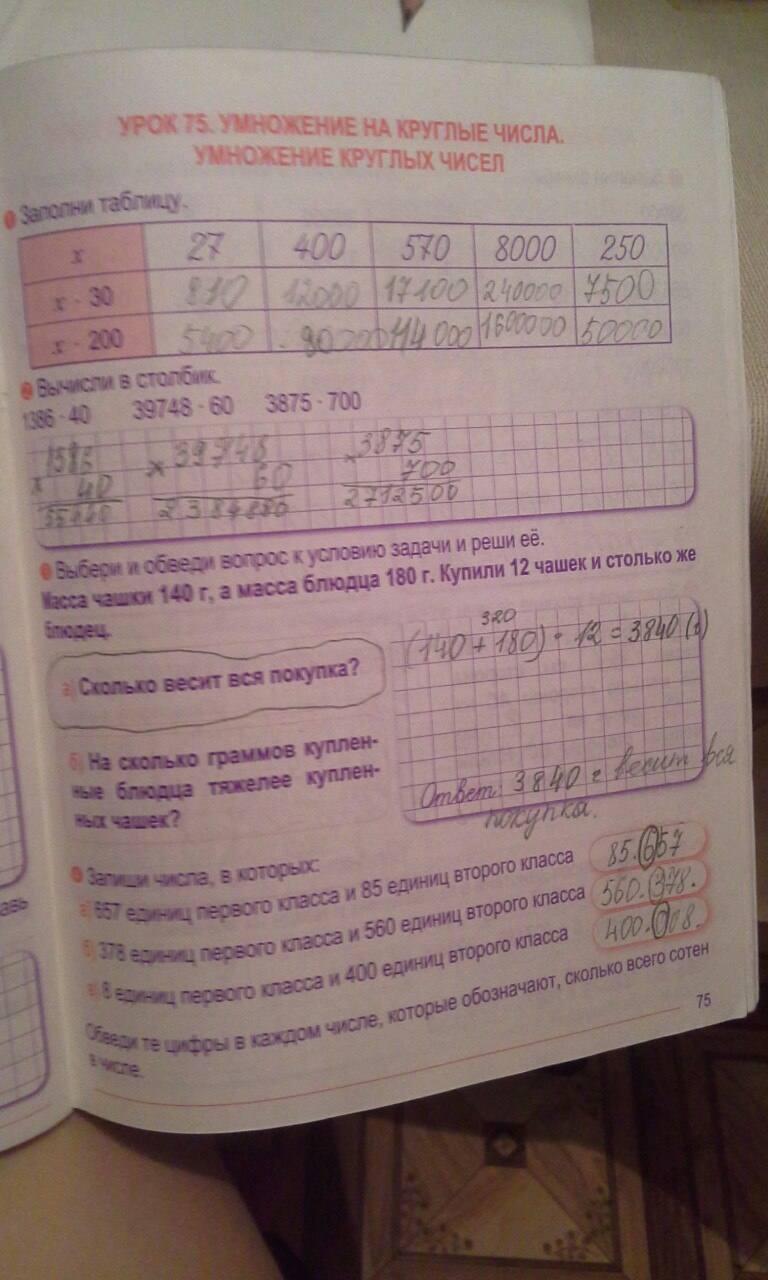 УРОК 75. УМНОЖЕНИЕ НА КРУГЛЫЕ ЧИСЛА.
УМНОЖЕНИЕ КРУГЛЫХ ЧИСЕЛ
Заполни таблицу.
x 27 400 570 8000 250
x · 30 810 12000 17100 240000 7500
x · 200 5400 80000 114000 1600000 50000
Вычисли в столбик.
1386 · 40 39748 · 60 3875 · 700
1386 × 39748 × 3875
x 40 60 700
55440 2384880 2712500
Выбери и обведи вопрос к условию задачи и реши её.
Масса чашки 140 г, а масса блюдца 180 г. Купили 12 чашек и столько же
блюдец.
320
(140 + 180) · 12 = 3840 (г)
а) Сколько весит вся покупка?
б) На сколько граммов куплен-
ные блюдца тяжелее куплен-
ных чашек?
Ответ: 3840 г весит вся
покупка.
Запиши числа, в которых:
а) 657 единиц первого класса и 85 единиц второго класса 85.657
б) 378 единиц первого класса и 560 единиц второго класса 560.378.
в) 8 единиц первого класса и 400 единиц второго класса 400.008.
Обведи те цифры в каждом числе, которые обозначают, сколько всего сотен
в числе.
75